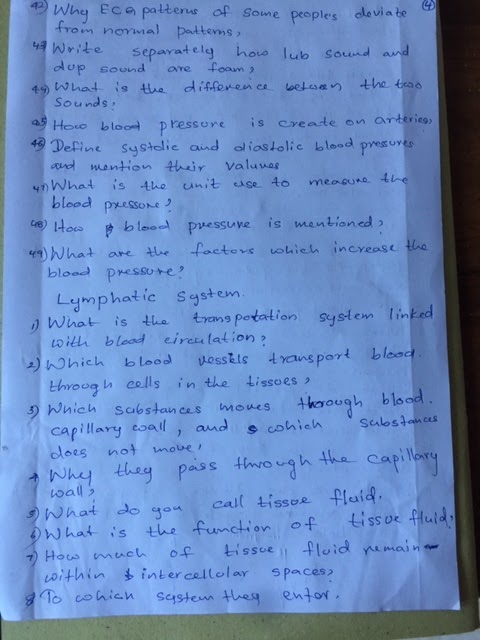 (4)
42) Why ECG patterns of some peoples deviate
from normal patterns,
43) Write separately how lub sound and
dup sound are foam,
44) What is the difference between the two
sounds,
45) How blood pressure is create on arteries,
46) Define systolic and diastolic blood pressures
and mention their valuves
47) What is the unit use to measure the
blood pressure?
48) How blood pressure is mentioned?
49) What are the factors which increase the
blood pressure?
Lymphatic System.
1) What is the transpotation system linked
with blood circulation?
2) Which blood vessels transport blood
through cells in the tissues,
3) Which substances moves through blood
capillary wall, and which substances
does not move,
4) Why they pass through the capillary
wall,
5) What do you call tissue fluid.
6) What is the function of tissue fluid,
7) How much of tissue fluid remain
within intercellular spaces,
8) To which system they enter.